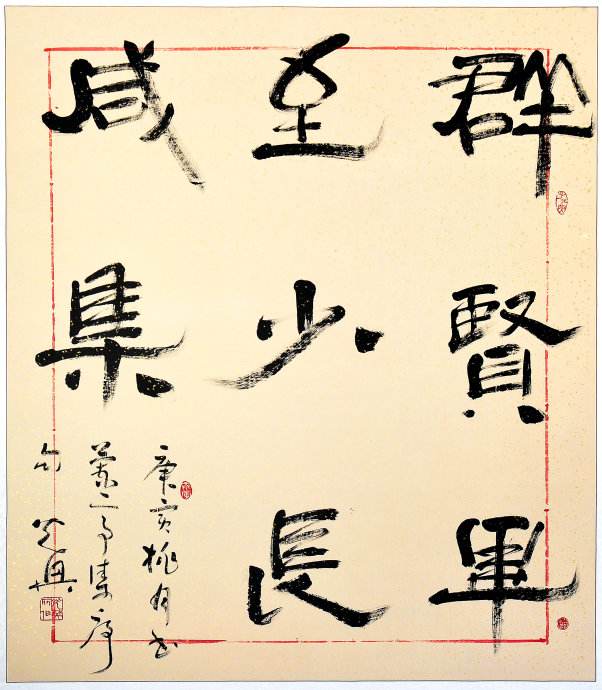 群賢畢
至少長
咸集
庚寅桃月書
蘭亭集序
句